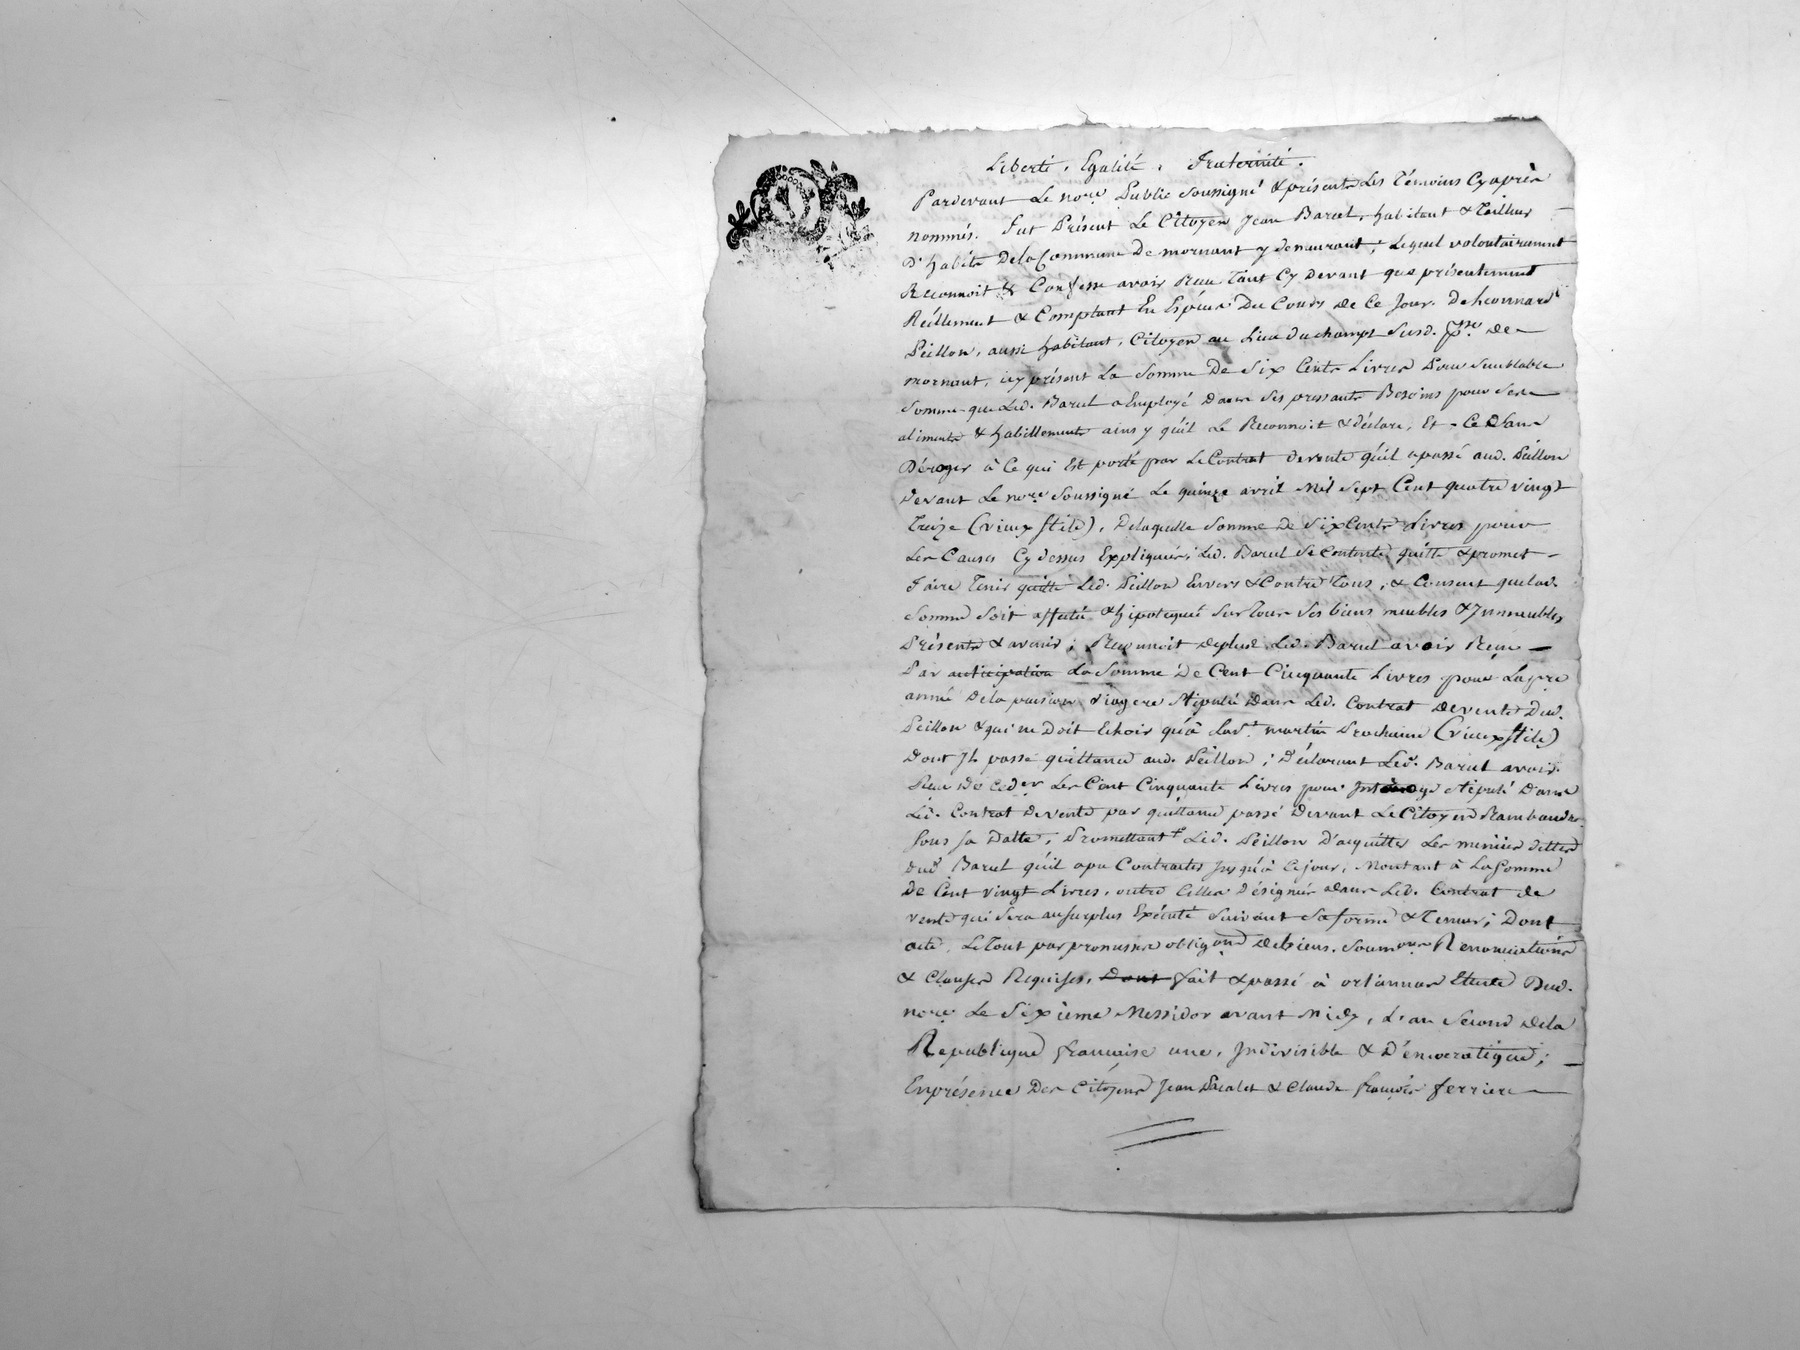 Liberté, Egalité, Fraternité.
Pardevant Le nore Public Soussigné & présents Les Témoins Cyaprès
nommés. Fut Présent Le Citoyen Jean Barul, habitant & Tailleur
D'habits De la Commune De mornant y demeurant, Lequel volontairement
Reconnoit & Confesse avoir Reçu Tant Cy Devant que présentement
Réellement & Comptant En Espèces Du Cours De Ce Jour. De Leonnard
Peillon, aussi habitant, Citoyen au Lieu du champt Susd. psse de
mornant, icy présent La Somme De Six Cents Livres Pour Semblable
Somme que Led. Barul a Employé Dans Ses pressants Besoins pour Ses
aliments & habillements ainsy qu'il Le Reconnoit & déclare, Et Ce Sans
Déroger à Ce qui Est porté par Le Contrat de vente qu'il a passé aud. Peillon
Devant Le nore Soussigné Le quinze avril Mil Sept Cent quatre vingt
Treize (vieux Stile), De laquelle Somme De Six Cents Livres pour
Les Causes Cy dessus Expliquées, Led. Barul Se Contente, quitte & promet
Faire Tenir quitte Led. Peillon Envers & Contre Tous, & Consent que lad.
Somme Soit affectée & hipotequée Sur Tous Ses biens meubles & Immeubles
Présents & avenir; Reconnoit deplus Led. Barul avoir Reçu
Par anticipation La Somme De Cent Cinquante Livres pour La pre
année De la pension viagere Stipulée Dans Led. Contrat De vente Dud.
Peillon & qui ne Doit Echoir qu'à la St. martin Prochaine (vieux Stile)
Dont Il passe quittance aud. Peillon; Déclarant Led. Barul avoir
Reçu De Ceder Les Cent Cinquante Livres pour Stipulé Dans
Led. Contrat De vente par quittance passé Devant Le Citoyen Rambaud no.
Sous Sa Datte, Promettant Led. Peillon D'acquitter Les menües dettes
Dud. Barul qu'il a pu Contracter Jusqu'à Ce jour, Montant à La Somme
De Cent vingt Livres, outre Celles Désignées dans Led. Contrat de
vente qui Sera ausurplus Exécuté Suivant Sa forme & Teneur; Dont
acte. Le Tout par promesses obligons De biens. Soumons Renonciations
& Clauses Requises. Dont fait & passé à Etude Dud.
nore Le Sixième Messidor avant Midy, L'an Second De la
Republique française une, Indivisible & Démocratique;
En présence Des Citoyens Jean & Claude françois ferriere